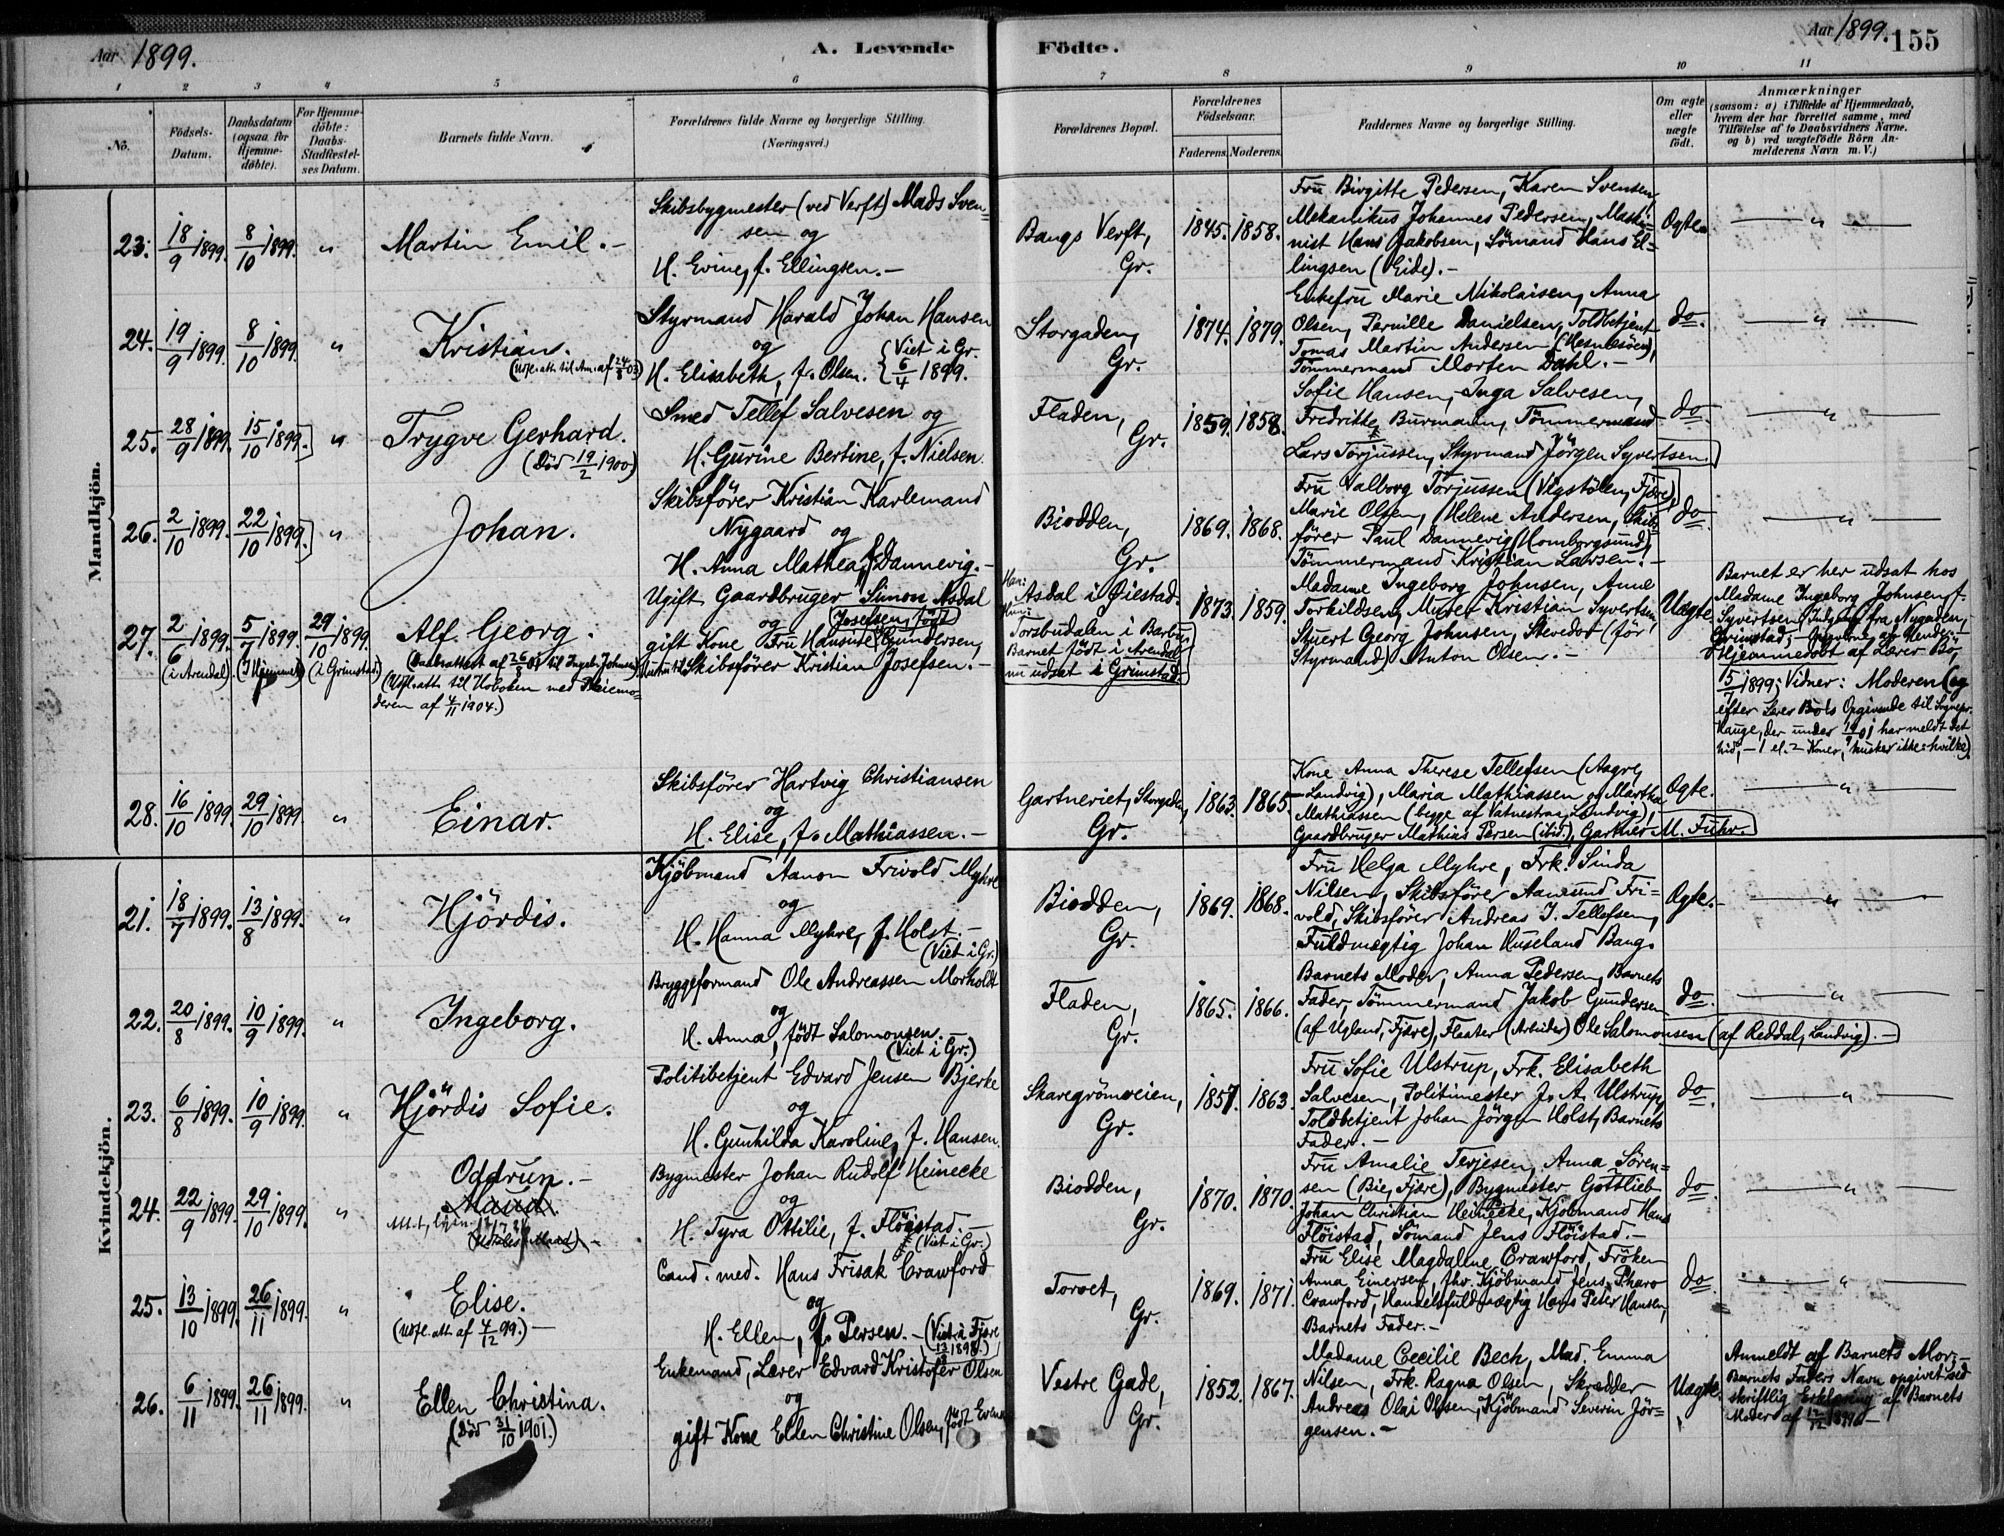 Aar 1899.
A. Levende Födte.
Aar 1899. 155
1 2 3 4 5 6 7 8 9 10 11
No.
Födsels-Datum.
Daabsdatum (ogsaa for Hjemme-döbte).
For Hjemme-döbte: Daabs-Stadfæstel-ses Datum.
Barnets fulde Navn.
Forældrenes fulde Navne og borgerlige Stilling.
(Næringsvei.)
Forældrenes Bopæl.
Forældrenes Födselsaar.
Faderens. Moderens.
Faddernes Navne og borgerlige Stilling.
Om ægte eller uægte födt.
Anmærkninger
(saasom: a) i Tilfælde af Hjemmedaab,
hvem der har forrettet samme, med
Tilföielse af to Daabsvidners Navne,
og b) ved uægtefödte Börn An-
melderens Navn m. V.)
Mandkjön.
23. 18/9 1899. 8/10 1899. " Martin Emil.-
Skibsbygmester (ved Verft) Mads Sven-
sen og
H. Evine, f. Ellingsen.-
Bangs Verft,
Gr.
1845. 1858.
Fru Birgitte Pedersen, Karen Svensen,
Mekanikus Johannes Pedersen, Maski-
nist Hans Jakobsen, Sömand Hans El-
lingsen (Eide).-
Ægte. "
24. 19/9 1899. 8/10 1899. " Kristian.
Styrmand Harald Johan Hansen
og
H. Elisabeth, f. Olsen. (Viet i Gr. 6/4 1899.
Storgaden,
Gr.
1874. 1879.
Enkefru Marie Nikolaisen, Anna
Olsen, Pernille Danielsen, Toldbetjent
Tomas Martin Andersen (Hesnæsöen),
Tömmermand Morten Dahl.-
do. "
25. 28/9 1899. 15/10 1899. " Trygve Gerhard.
(Död 19/2 1900)
Smed Tellef Salvesen og
H. Gurine Bertine, f. Nielsen.
Fladen,
Gr.
1859. 1858.
Sofie Hansen, Inga Salvesen,
Fredrikke Burmann, Tömmermand
Lars Torjussen, Styrmand Jörgen Syvertsen.
do. "
26. 2/10 1899. 22/10 1899. " Johan.
Skibsförer Kristian Karlemand
Nygaard og
H. Anna Mathea, f. Dannevig.-
Biodden,
Gr.
1869. 1868.
Fru Valborg Torjussen (Vigstölen, Fjære),
Marie Olsen, Helene Andersen, Skibs-
förer Paul Dannevig (Homborgsund),
Tömmermand Kristian Larsen.-
do. "
27. 2/6 1899. 5/7 1899. 29/10 1899. Alf Georg.
(i Arendal). (Hjemmed.) (i Grimstad.)
Ugift Gaardbruger Simon Asdal
og
gift Kone Fru Hansine Gundersen,
Skibsförer Kristian Josefsen.-
Asdal i Öiestad.
Torsbudalen i Barbu,
Barnet födt i Arendal
nu udsat i Grimstad.
1873. 1859.
Madame Ingeborg Johnsen, Anne
Torkildsen, Murer Kristian Syvertsen,
Stuert Georg Johnsen, Stevedor (för
Styrmand) Anton Olsen.-
Uægte.
Barnet er her udsat hos
Madame Ingeborg Johnsen, f.
Syvertsen,
Hjemmedöbt af Lærer Bö
5/7 1899; Vidner: Moderen (og
28. 16/10 1899. 29/10 1899. " Einar.
Skibsförer Hartvig Christiansen
og
H. Elise, f. Mathiassen.-
Gartneriet, Storgaden,
Gr.
1863. 1865.
Kone Anna Therese Tellefsen (Aagre,
Landvig), Maria Mathiassen og Martha
Mathiassen (begge af Vatnestrøm, Landvig),
Gaardbruger Mathias Persen (ibid.), Gartner M. Fuhr.
Ægte. "
Kvindekjön.
21. 18/7 1899. 13/8 1899. " Hjördis.
Kjöbmand Aanon Frivold Myhre
og
H. Hanna Myhre, f. Holst.-
(Viet i Gr.)
Biodden,
Gr.
1869. 1868.
Fru Helga Myhre, Frk. Sinda
Nilsen, Skibsförer Aamund Fri-
vold, Skibsförer Andreas J. Tellefsen,
Fuldmægtig Johan Huseland Bang.
Ægte. "
22. 20/8 1899. 10/9 1899. " Ingeborg.
Bryggeformand Ole Andreassen Morholdt
og
H. Anna, födt Salomonsen.-
(Viet i Gr.)
Fladen,
Gr.
1865. 1866.
Barnets Moder, Anna Pedersen, Barnets
Fader, Tömmermand Jakob Gundersen
(af Ugland, Fjære), Flaater (Arbeider) Ole Salomonsen (af Reddal, Landvig).-
do. "
23. 6/8 1899. 10/9 1899. " Hjördis Sofie.
Politibetjent Edvard Jensen Bjerke
og
H. Gunhilda Karoline, f. Hansen.
Skaregrömveien,
Gr.
1857. 1863.
Fru Sofie Ulstrup, Frk. Elisabeth
Salvesen, Politimester J. A. Ulstrup,
Toldbetjent Johan Jörgen Holst, Barnets
Fader.-
do. "
24. 22/9 1899. 29/10 1899. " Oddrun.-
Maud.
Bygmester Johan Rudolf Heinecke
og
H. Tyra Ottilie, f. Flöistad.-
(Viet i Gr.)
Biodden,
Gr.
1870. 1870.
Fru Amalie Terjesen, Anna Sören-
sen (Bie, Fjære), Bygmester Gottlieb
Johan Christian Heinecke, Kjöbmand Hans
Flöistad, Sömand Jens Flöistad.-
do. "
25. 13/10 1899. 26/11 1899. " Elise.
(Udfl.att. af 4/12 99.)-
Cand. med. Hans Frisak Crawford
og
H. Ellen, f. Persen.- (Viet i Fjære
Torvet,
Gr.
1869. 1871.
Fru Elise Magdalene Crawford, Fröken
Anna Einersen, fhv. Kjöbmand Jens Pharo
Crawford, Handelsfuldmægtig Hans Peter Hansen,
Barnets Fader.-
do. "
26. 6/11 1899. 26/11 1899. " Ellen Christina.
(Död 31/10 1901.)
Enkemand, Lærer Edvard Kristofer Olsen
og
gift Kone Ellen Christine Olsen, födt
Vestre Gade,
Gr.
1852. 1867.
Madame Cecilie Bech, Mad. Emma
Nilsen, Frk. Ragna Olsen, Skrædder
Andreas Olai Olsen, Kjöbmand Severin Jör-
gensen.-
Uægte.
Anmeldt af Barnets Mor;-
Barnets Faders Navn opgivet ved
skriftlig Erklæring af Barnets
Moder af 12/12 1899.-